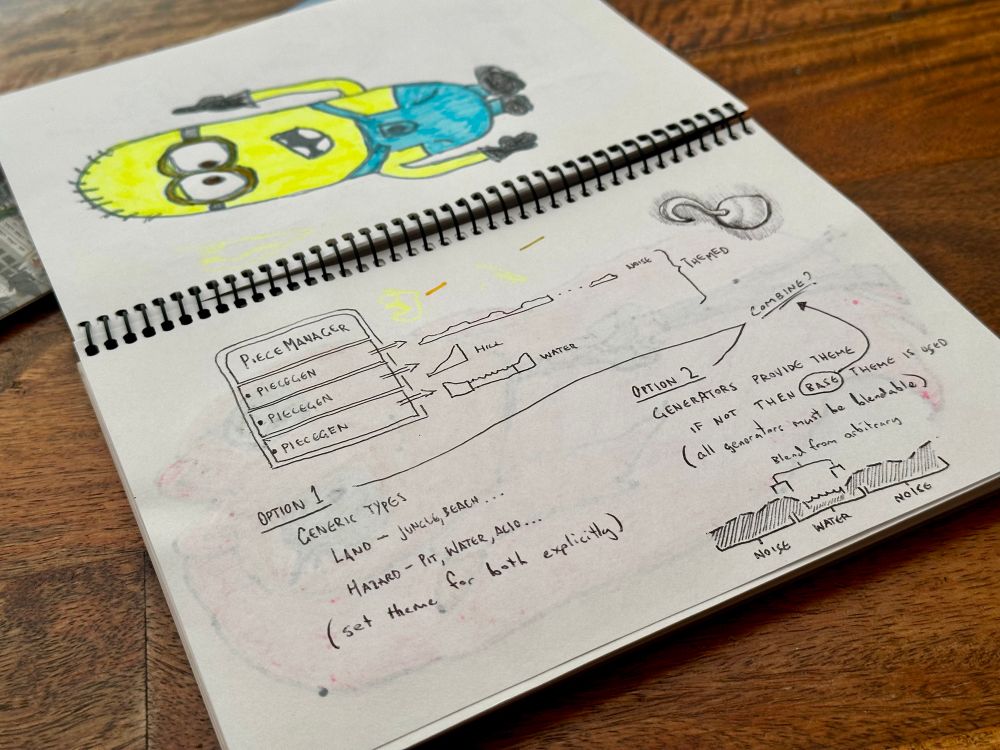 PIECEMANAGER
• PIECEGEN
• PIECEGEN
• PIECEGEN
NOISE
HILL
WATER
THEMED
COMBINE?
OPTION 1
GENERIC TYPES
LAND – JUNGLE, BEACH ...
HAZARD – PIT, WATER, ACID ...
(set theme for both explicitly)
OPTION 2
GENERATORS PROVIDE THEME
IF NOT THEN BASE THEME IS USED
(all generators must be blendable)
Blend from arbitrary
NOISE
WATER
NOISE